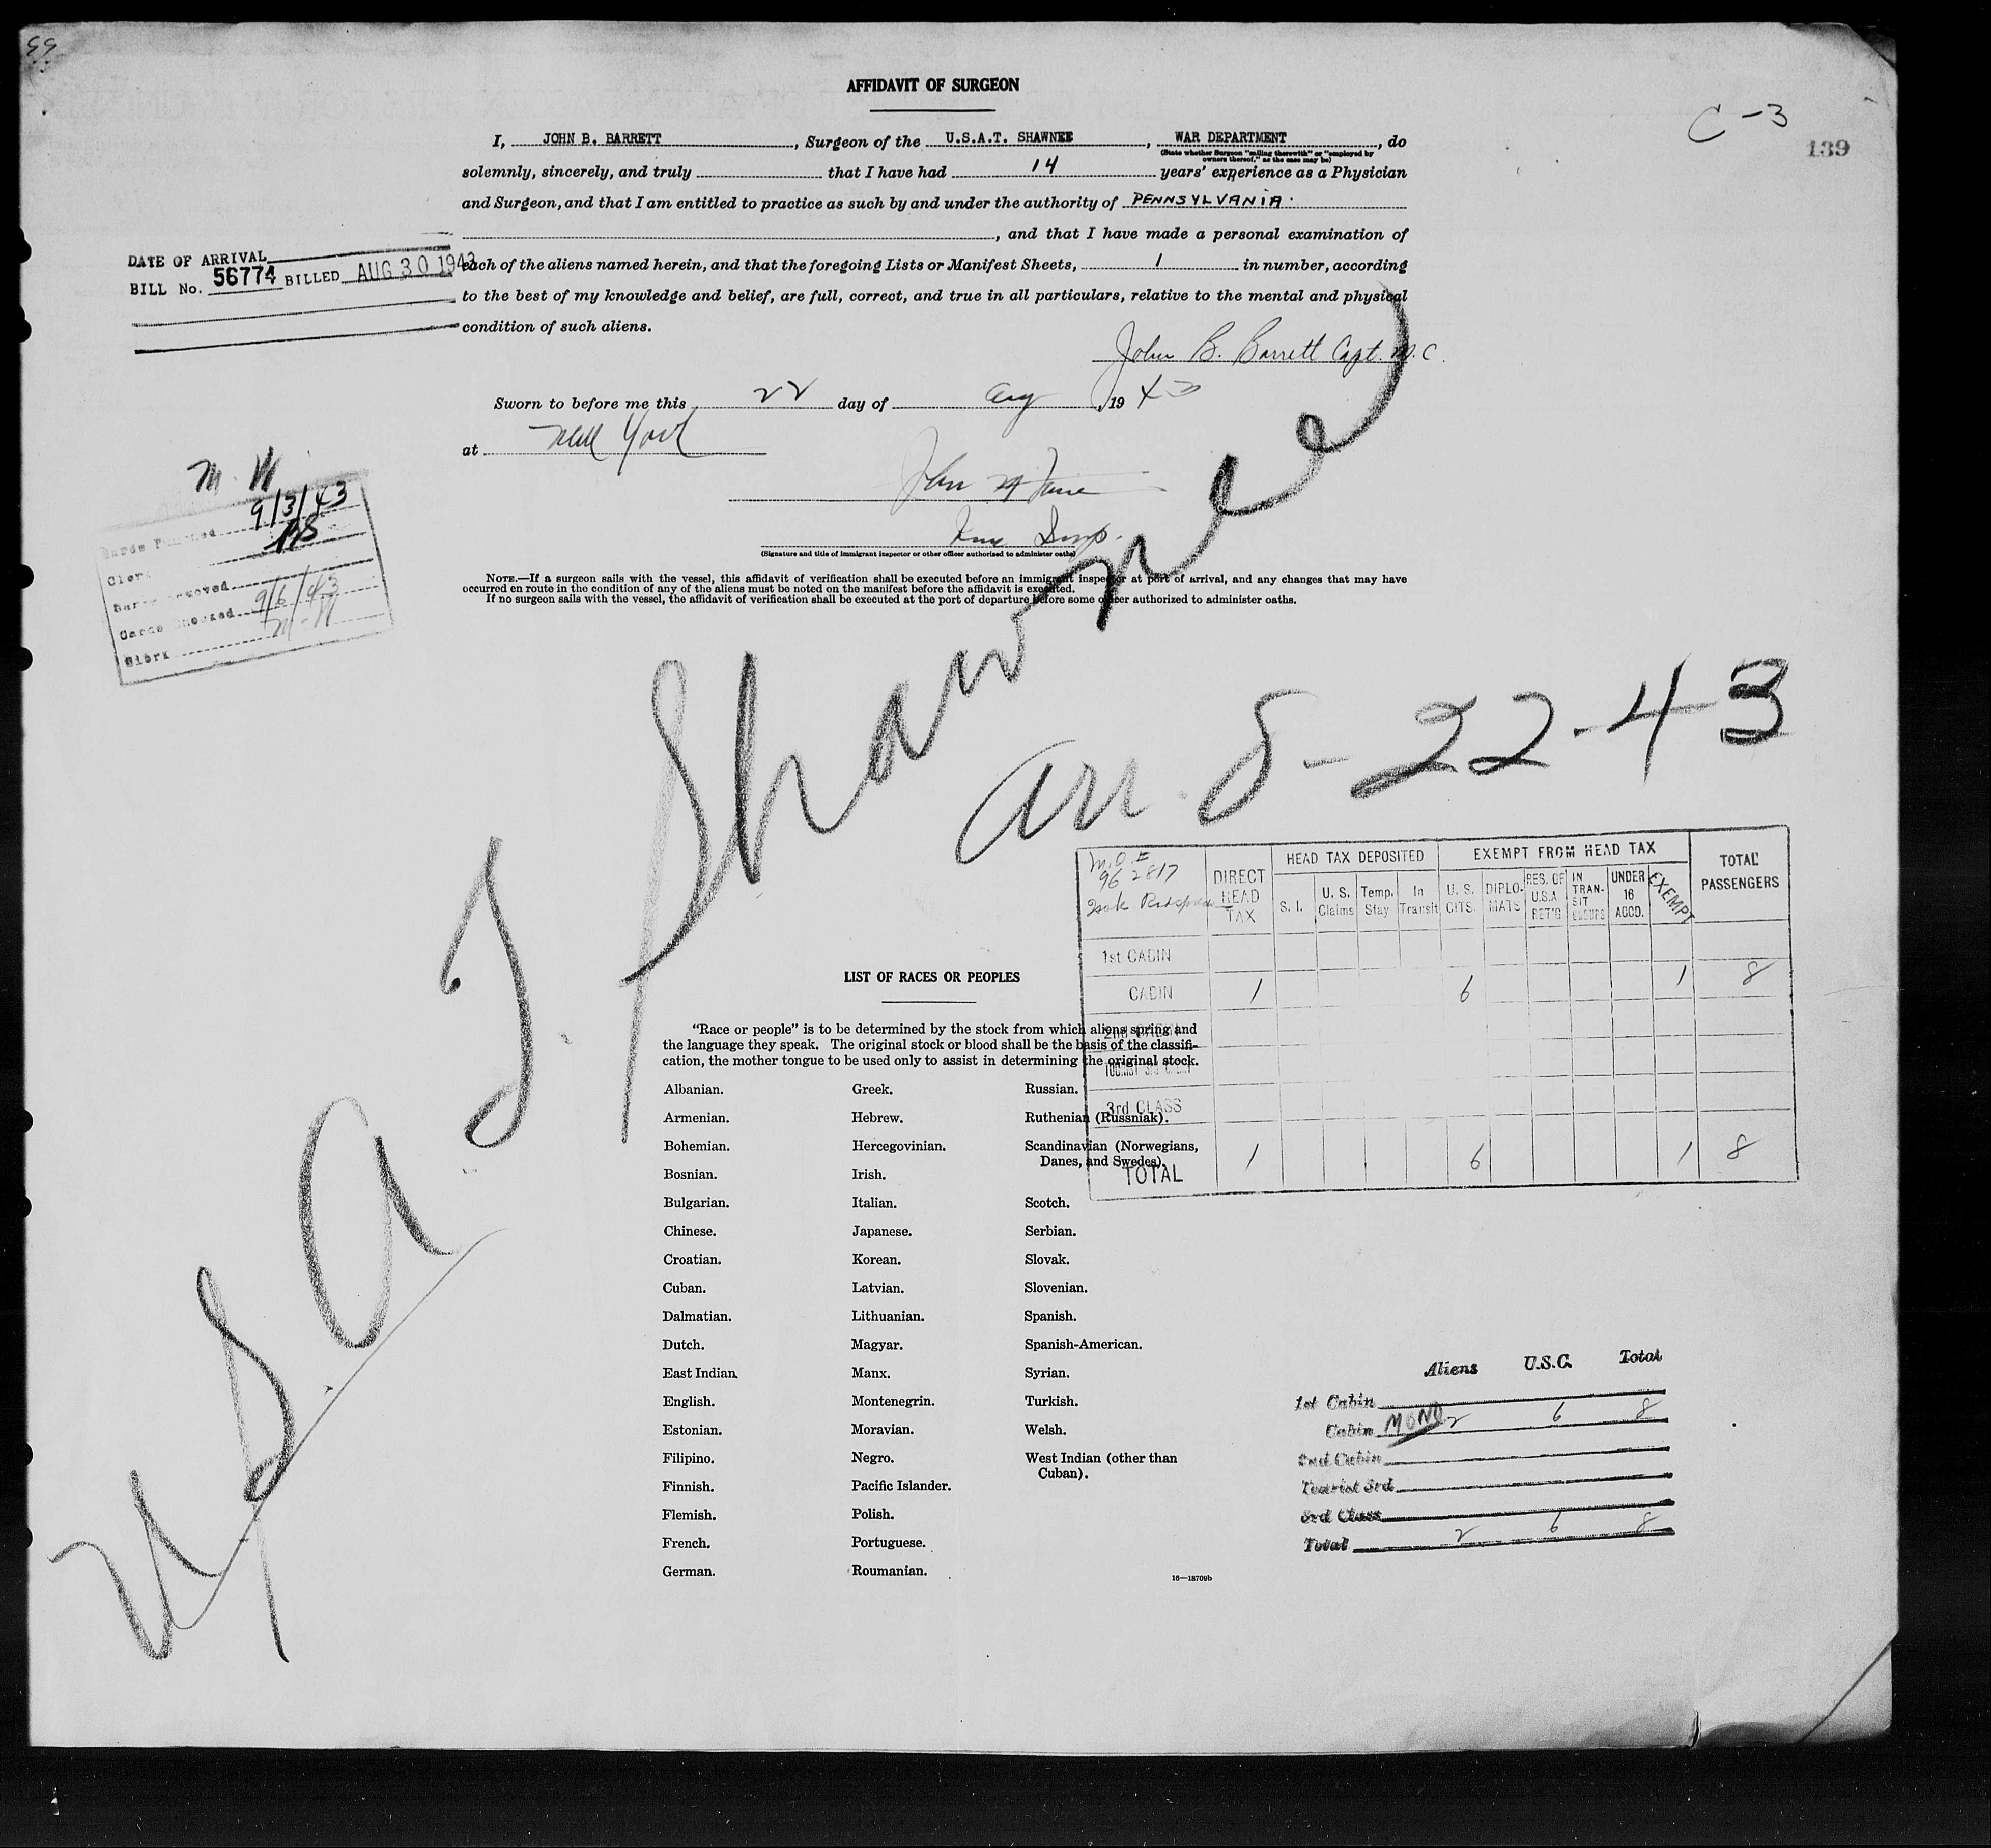 AFFIDAVIT OF SURGEON
C-3
139
I, JOHN B. BARRETT, Surgeon of the U.S.A.T. SHAWNEE, WAR DEPARTMENT, do
(State whether Surgeon "sailing therewith" or "employed by
owners thereof," as the case may be)
solemnly, sincerely, and truly that I have had 14 years' experience as a Physician
and Surgeon, and that I am entitled to practice as such by and under the authority of PENNSYLVANIA.
, and that I have made a personal examination of
each of the aliens named herein, and that the foregoing Lists or Manifest Sheets, 1 in number, according
to the best of my knowledge and belief, are full, correct, and true in all particulars, relative to the mental and physical
condition of such aliens.
DATE OF ARRIVAL
BILL No. 56774 BILLED AUG 30 1943
John B. Barrett Capt. M.C.
Sworn to before me this 22 day of Aug, 19 43
at New York
John M
(Signature and title of immigrant inspector or other officer authorized to administer oaths)
M. W
9/3/43
Clerk
Cards Checked 9/6/43
M-W
Clerk
NOTE.—If a surgeon sails with the vessel, this affidavit of verification shall be executed before an immigrant inspector at port of arrival, and any changes that may have
occurred en route in the condition of any of the aliens must be noted on the manifest before the affidavit is executed.
If no surgeon sails with the vessel, the affidavit of verification shall be executed at the port of departure before some officer authorized to administer oaths.
U.S.A.T. Shawnee
arr. 8-22-43
962817
DIRECT HEAD TAX
HEAD TAX DEPOSITED
EXEMPT FROM HEAD TAX
TOTAL PASSENGERS
S. I.
U. S. Claims
Temp. Stay
In Transit
U. S. CITS.
DIPLOMATS
RES. OF U.S.A RET'G
IN TRANSIT
UNDER 16 ACCD.
EXEMPT
1st CABIN
CABIN 1 6 1 8
3rd CLASS
TOTAL 1 6 1 8
LIST OF RACES OR PEOPLES
"Race or people" is to be determined by the stock from which aliens spring and
the language they speak. The original stock or blood shall be the basis of the classifi-
cation, the mother tongue to be used only to assist in determining the original stock.
Albanian. Greek. Russian.
Armenian. Hebrew. Ruthenian (Russniak).
Bohemian. Hercegovinian. Scandinavian (Norwegians,
Danes, and Swedes).
Bosnian. Irish.
Bulgarian. Italian. Scotch.
Chinese. Japanese. Serbian.
Croatian. Korean. Slovak.
Cuban. Latvian. Slovenian.
Dalmatian. Lithuanian. Spanish.
Dutch. Magyar. Spanish-American.
East Indian. Manx. Syrian.
English. Montenegrin. Turkish.
Estonian. Moravian. Welsh.
Filipino. Negro. West Indian (other than
Cuban).
Finnish. Pacific Islander.
Flemish. Polish.
French. Portuguese.
German. Roumanian.
16—18709b
Aliens U.S.C. Total
1st Cabin
Cabin MONO 2 6 8
2nd Cabin
Tourist 3rd
3rd Class
Total 2 6 8